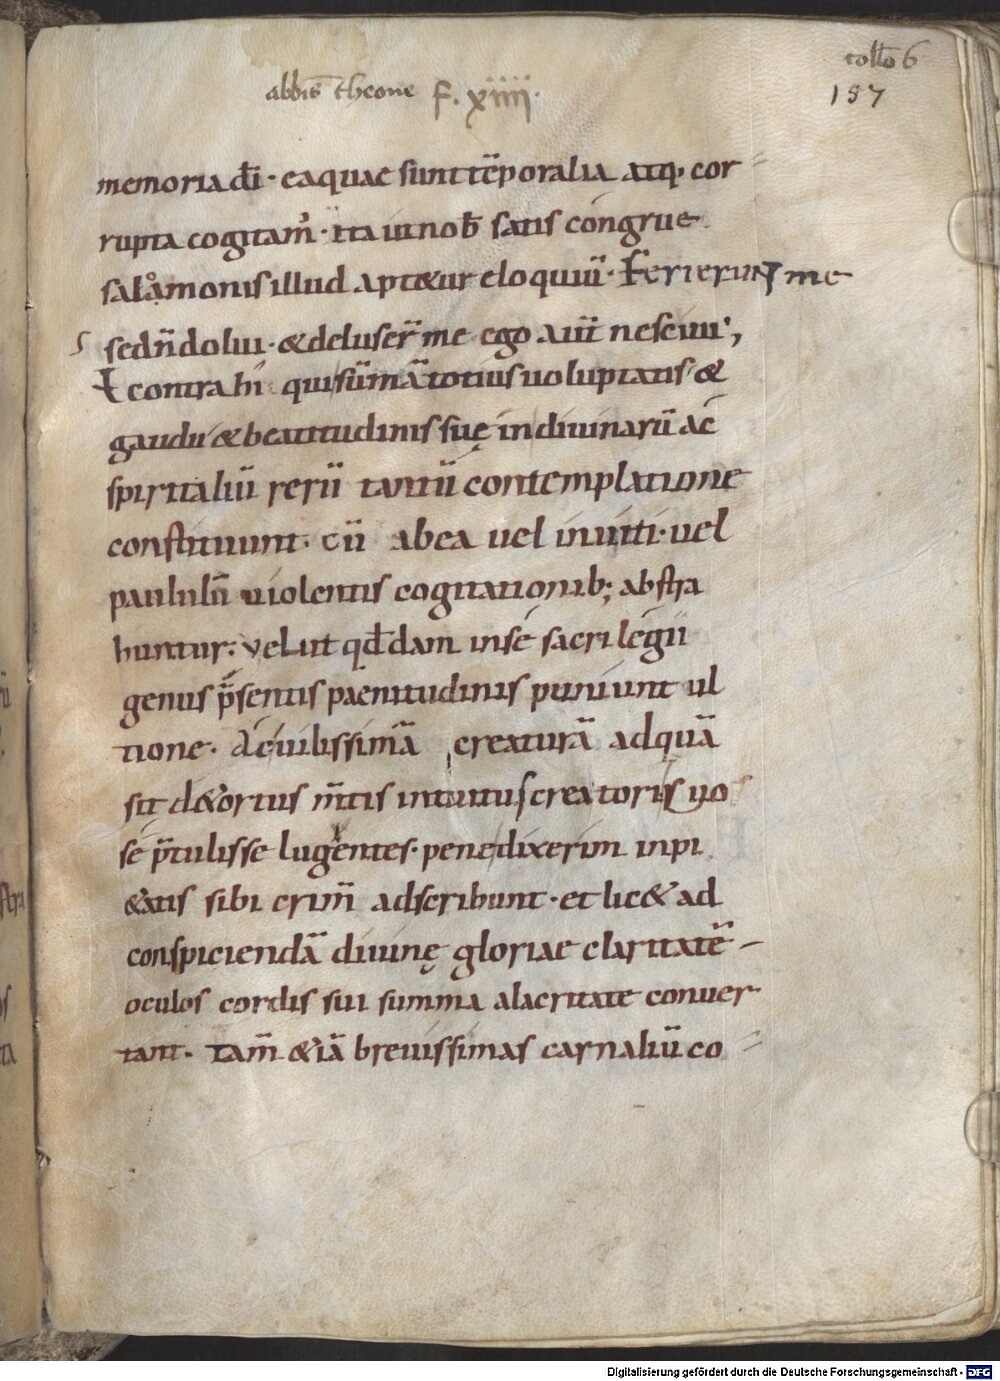 collo 6
abbis theone f. xiiii.
157
memoria di · eaquae sunt tēporalia atq; cor
rupta cogitam̄ · ita ut in nob̄ satis congrue
salamonis illud aptetur eloquiū · Ferierunt me
sed n̄ dolui · & deluser̄ me ego aut̄ nescivi;
Et contra hi qui sūmā totius voluptatis &
gaudii & beatitudinis suę in divinarū ac
spiritaliū rerū tantū contemplatione
constituunt · cū ab ea vel inviti · vel
paululū violentis cogitationib; abstra
huntur; velut qd̄dam in se sacrilegii
genus p̄sentis paenitudinis puniunt ul
tione · ac vilissimā creaturā ad quā
sit detortus m̄tis intuitus creatoris
se p̄tulisse lugentes · pene dixerim inpi
&atis sibi crim̄ adscribunt · et lic& ad
conspiciendā divinę gloriae claritatē
oculos cordis sui summa alacritate conver
tant · tam̄ &iā brevissimas carnaliū co
Digitalisierung gefördert durch die Deutsche Forschungsgemeinschaft - DFG